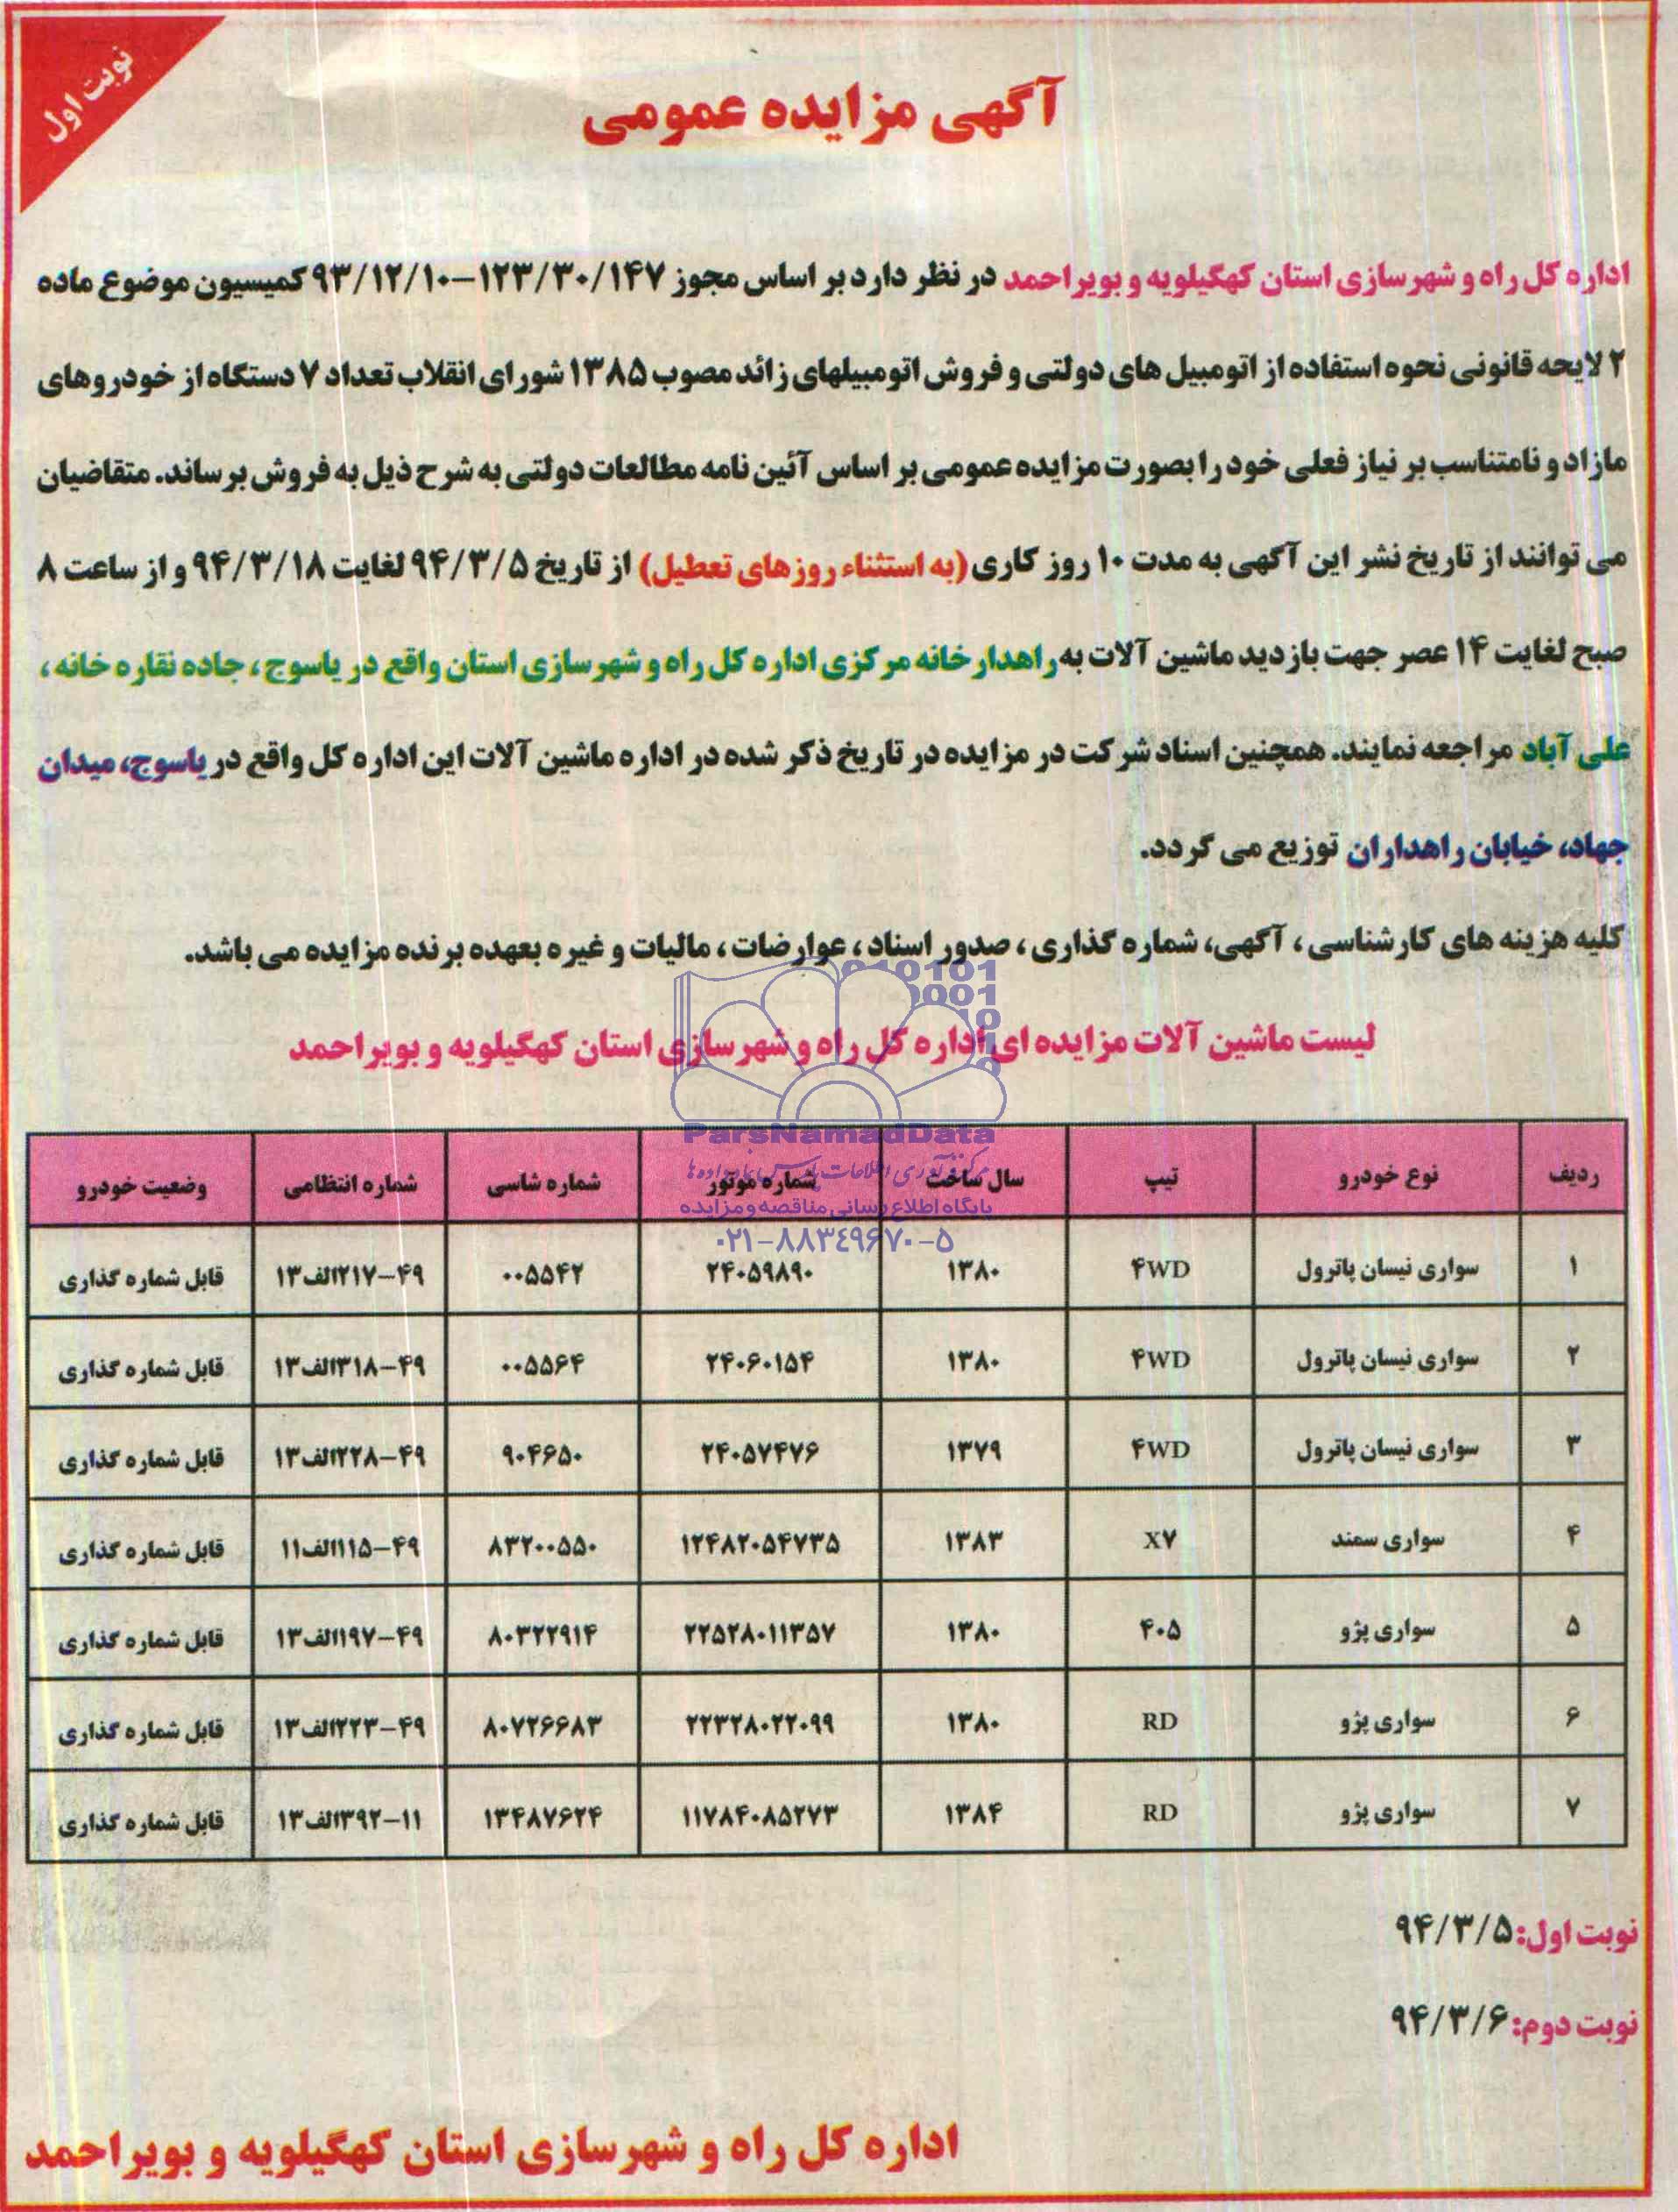 نوبت اول
آگهی مزایده عمومی
اداره کل راه و شهرسازی استان کهگیلویه و بویراحمد در نظر دارد بر اساس مجوز ۱۲۳/۳۰/۱۴۷–۹۳/۱۲/۱۰ کمیسیون موضوع ماده
۲ لایحه قانونی نحوه استفاده از اتومبیل های دولتی و فروش اتومبیلهای زائد مصوب ۱۳۸۵ شورای انقلاب تعداد ۷ دستگاه از خودروهای
مازاد و نامتناسب بر نیاز فعلی خود را بصورت مزایده عمومی بر اساس آئین نامه مطالعات دولتی به شرح ذیل به فروش برساند. متقاضیان
می توانند از تاریخ نشر این آگهی به مدت ۱۰ روز کاری (به استثناء روزهای تعطیل) از تاریخ ۹۴/۳/۵ لغایت ۹۴/۳/۱۸ و از ساعت ۸
صبح لغایت ۱۴ عصر جهت بازدید ماشین آلات به راهدارخانه مرکزی اداره کل راه و شهرسازی استان واقع در یاسوج، جاده نقاره خانه،
علی آباد مراجعه نمایند. همچنین اسناد شرکت در مزایده در تاریخ ذکر شده در اداره ماشین آلات این اداره کل واقع در یاسوج، میدان
جهاد، خیابان راهداران توزیع می گردد.
کلیه هزینه های کارشناسی، آگهی، شماره گذاری، صدور اسناد، عوارضات، مالیات و غیره بعهده برنده مزایده می باشد.
لیست ماشین آلات مزایده ای اداره کل راه و شهرسازی استان کهگیلویه و بویراحمد
ParsNamadData
پایگاه اطلاع رسانی مناقصه و مزایده
۰۲۱–۸۸۳۴۹۶۷۰–۵
ردیف نوع خودرو تیپ سال ساخت شماره موتور شماره شاسی شماره انتظامی وضعیت خودرو
۱ سواری نیسان پاترول ۴WD ۱۳۸۰ ۲۴۰۵۹۸۹۰ ۰۰۵۵۴۲ ۴۹–۲۱۷الف۱۳ قابل شماره گذاری
۲ سواری نیسان پاترول ۴WD ۱۳۸۰ ۲۴۰۶۰۱۵۴ ۰۰۵۵۶۴ ۴۹–۳۱۸الف۱۳ قابل شماره گذاری
۳ سواری نیسان پاترول ۴WD ۱۳۷۹ ۲۴۰۵۷۴۷۶ ۹۰۴۶۵۰ ۴۹–۲۲۸الف۱۳ قابل شماره گذاری
۴ سواری سمند X۷ ۱۳۸۳ ۱۲۴۸۲۰۵۴۷۳۵ ۸۳۲۰۰۵۵۰ ۴۹–۱۱۵الف۱۱ قابل شماره گذاری
۵ سواری پژو ۴۰۵ ۱۳۸۰ ۲۲۵۲۸۰۱۱۳۵۷ ۸۰۳۲۲۹۱۴ ۴۹–۱۹۷الف۱۳ قابل شماره گذاری
۶ سواری پژو RD ۱۳۸۰ ۲۲۳۲۸۰۲۲۰۹۹ ۸۰۷۲۶۶۸۳ ۴۹–۲۲۳الف۱۳ قابل شماره گذاری
۷ سواری پژو RD ۱۳۸۴ ۱۱۷۸۴۰۸۵۲۷۳ ۱۳۴۸۷۶۲۴ ۱۱–۳۹۲الف۱۳ قابل شماره گذاری
نوبت اول: ۹۴/۳/۵
نوبت دوم: ۹۴/۳/۶
اداره کل راه و شهرسازی استان کهگیلویه و بویراحمد